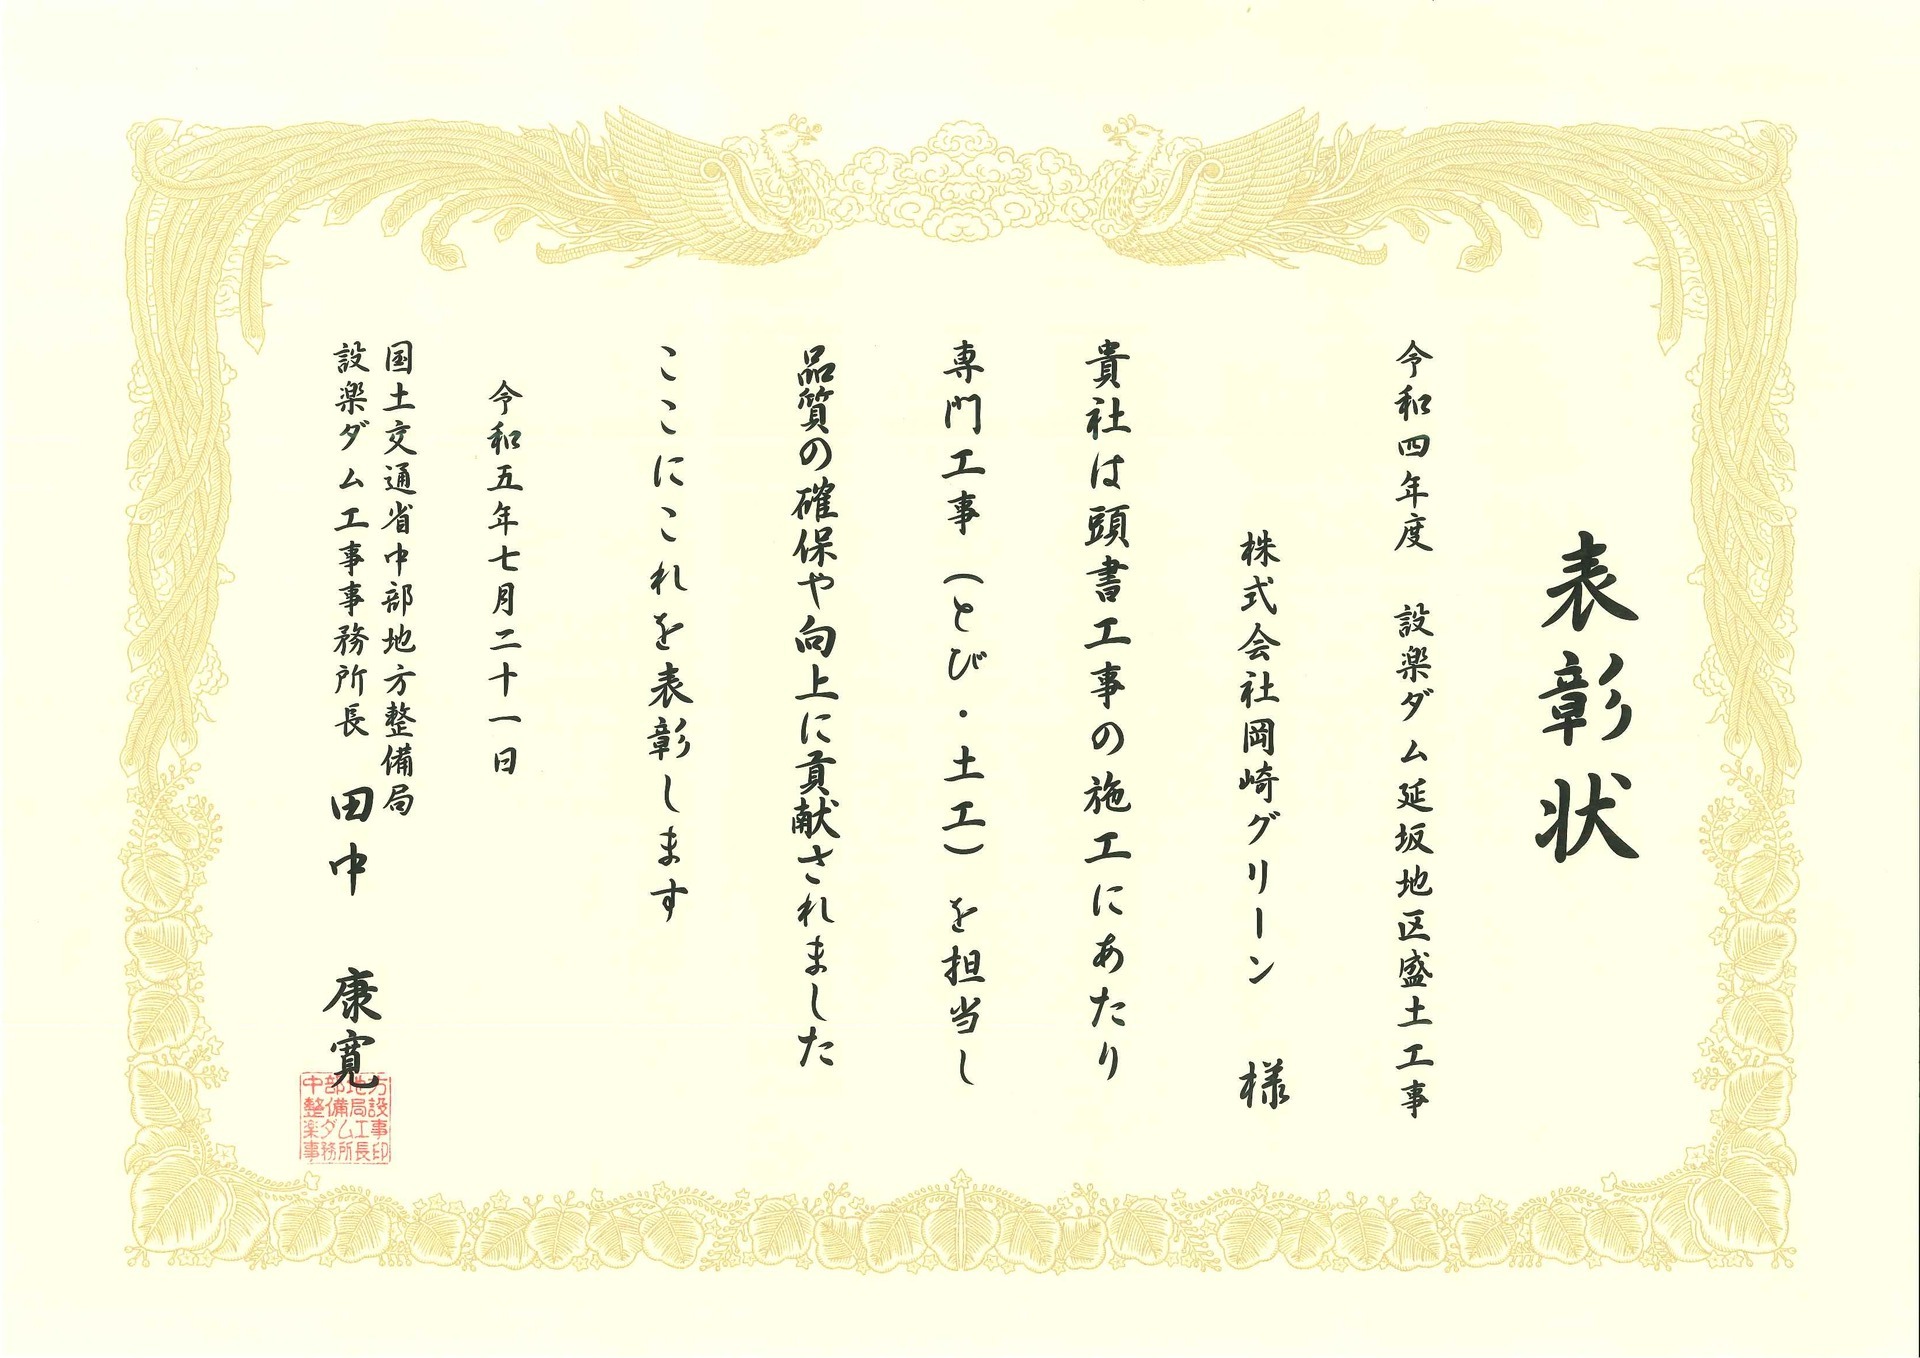 表彰状
令和四年度　設楽ダム延坂地区盛土工事
株式会社岡崎グリーン　様
貴社は頭書工事の施工にあたり
専門工事（とび・土工）を担当し
品質の確保や向上に貢献されました
ここにこれを表彰します
令和五年七月二十一日
国土交通省中部地方整備局
設楽ダム工事事務所長　田中　康寛
中部地方
整備局設
楽ダム工事
事務所長印